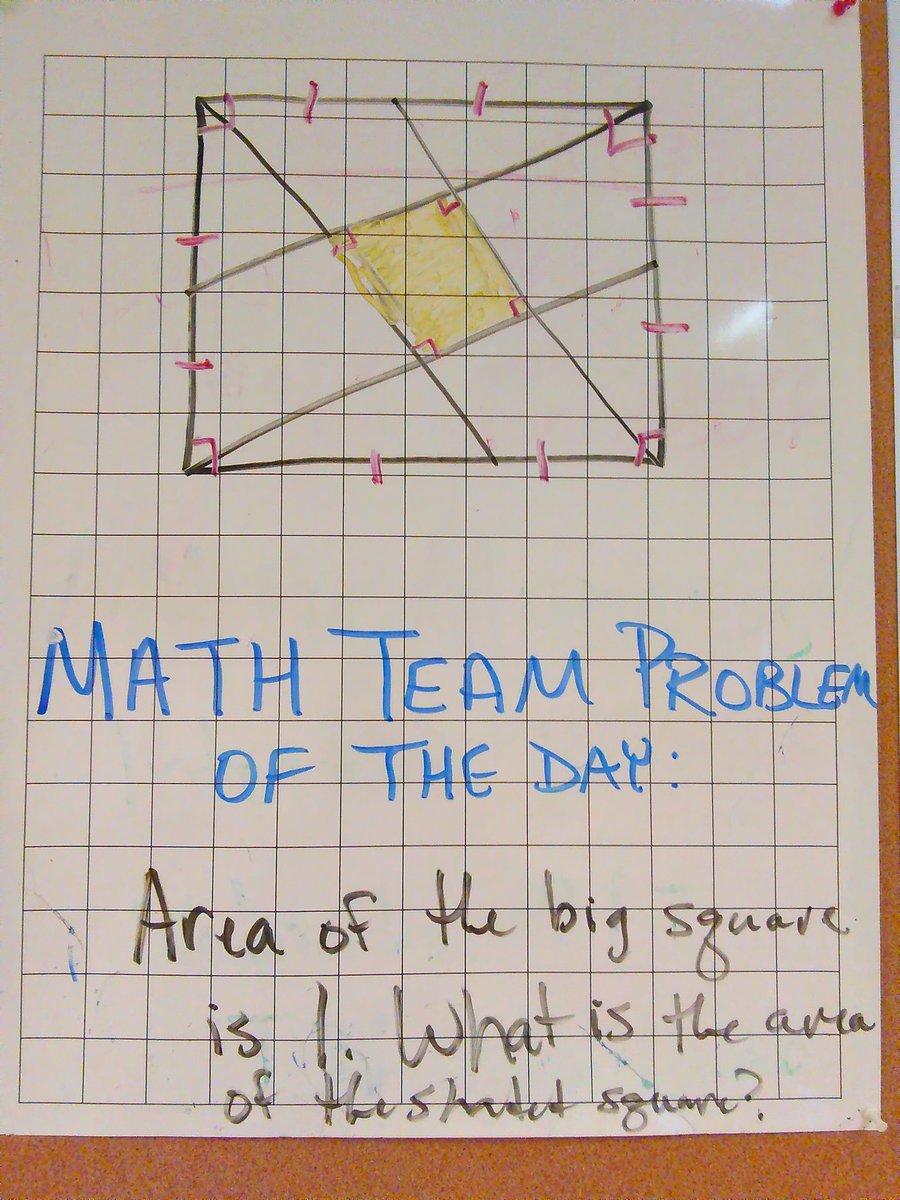 MATH TEAM PROBLEM
OF THE DAY:
Area of the big square
is 1. What is the area
of the shaded square?